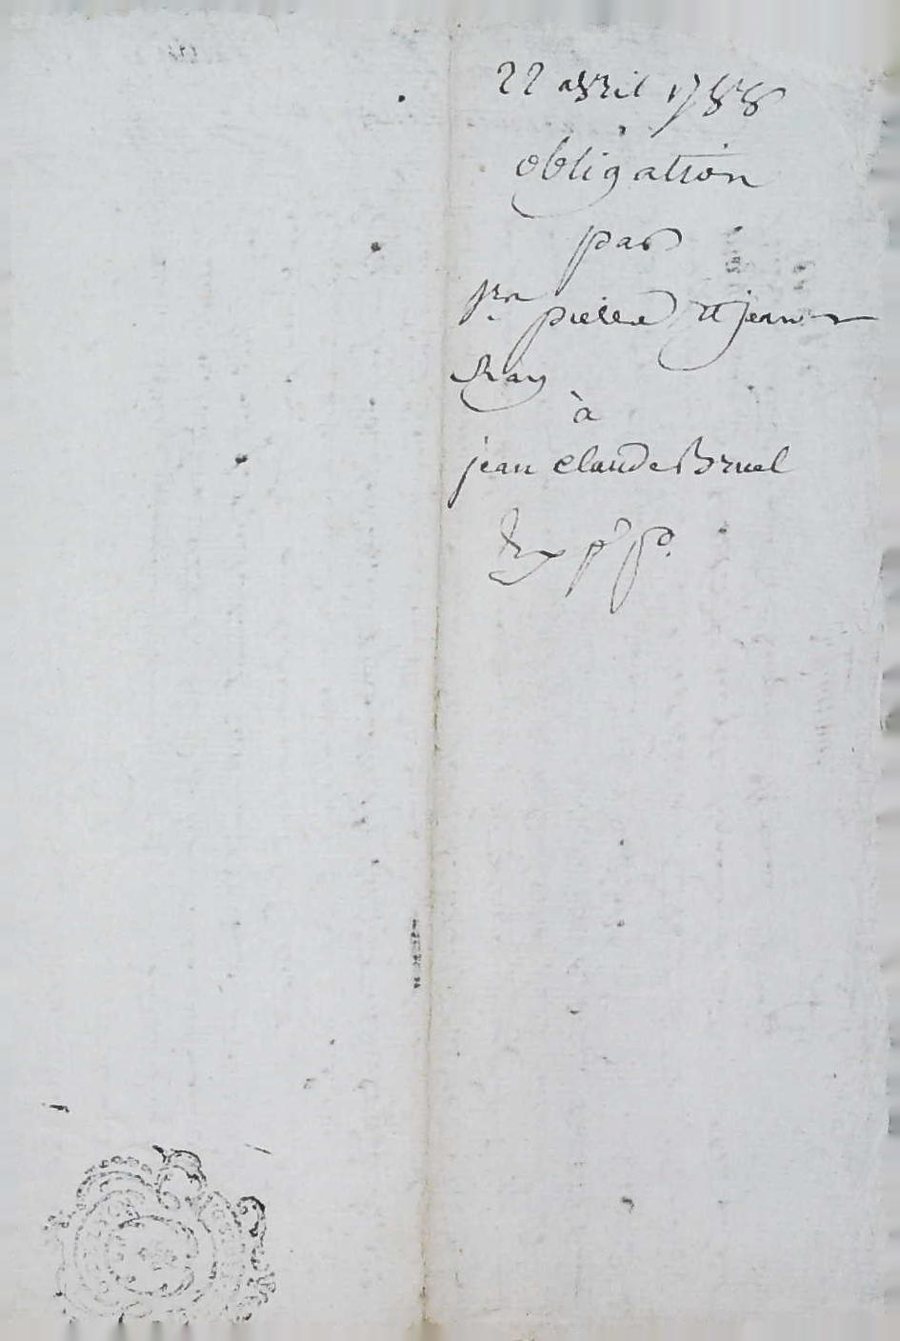 22 avril 1788
obligation
par
pierre et jean
Ray
à
jean claude Bruel